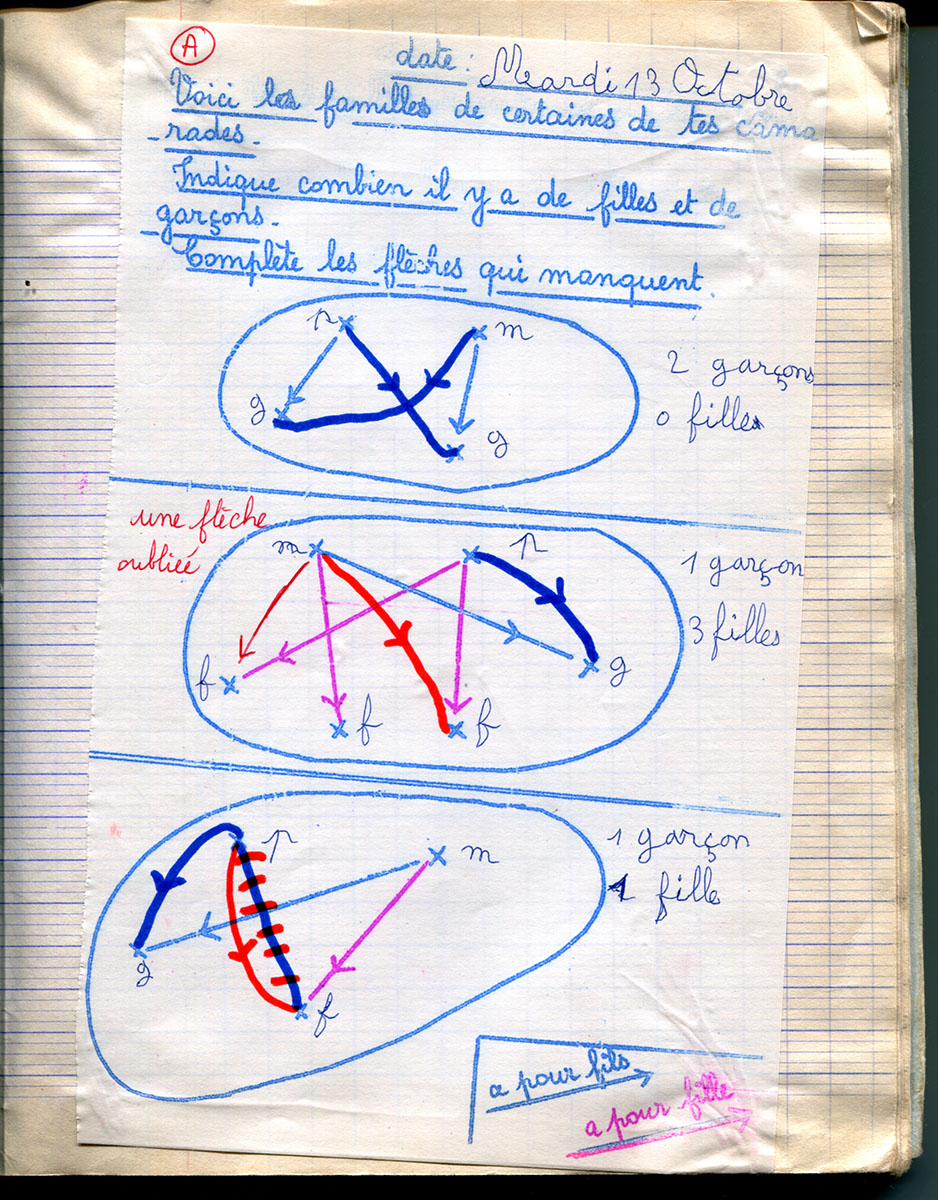 A
date : Mardi 13 Octobre
Voici les familles de certaines de tes cama
-rades.
Indique combien il y a de filles et de
garçons.
Complète les flèches qui manquent.
p m
g g
2 garçons
0 filles
une flèche
oubliée
m p
f f f g
1 garçon
3 filles
p m
g f
1 garçon
1 fille
a pour fils
a pour fille